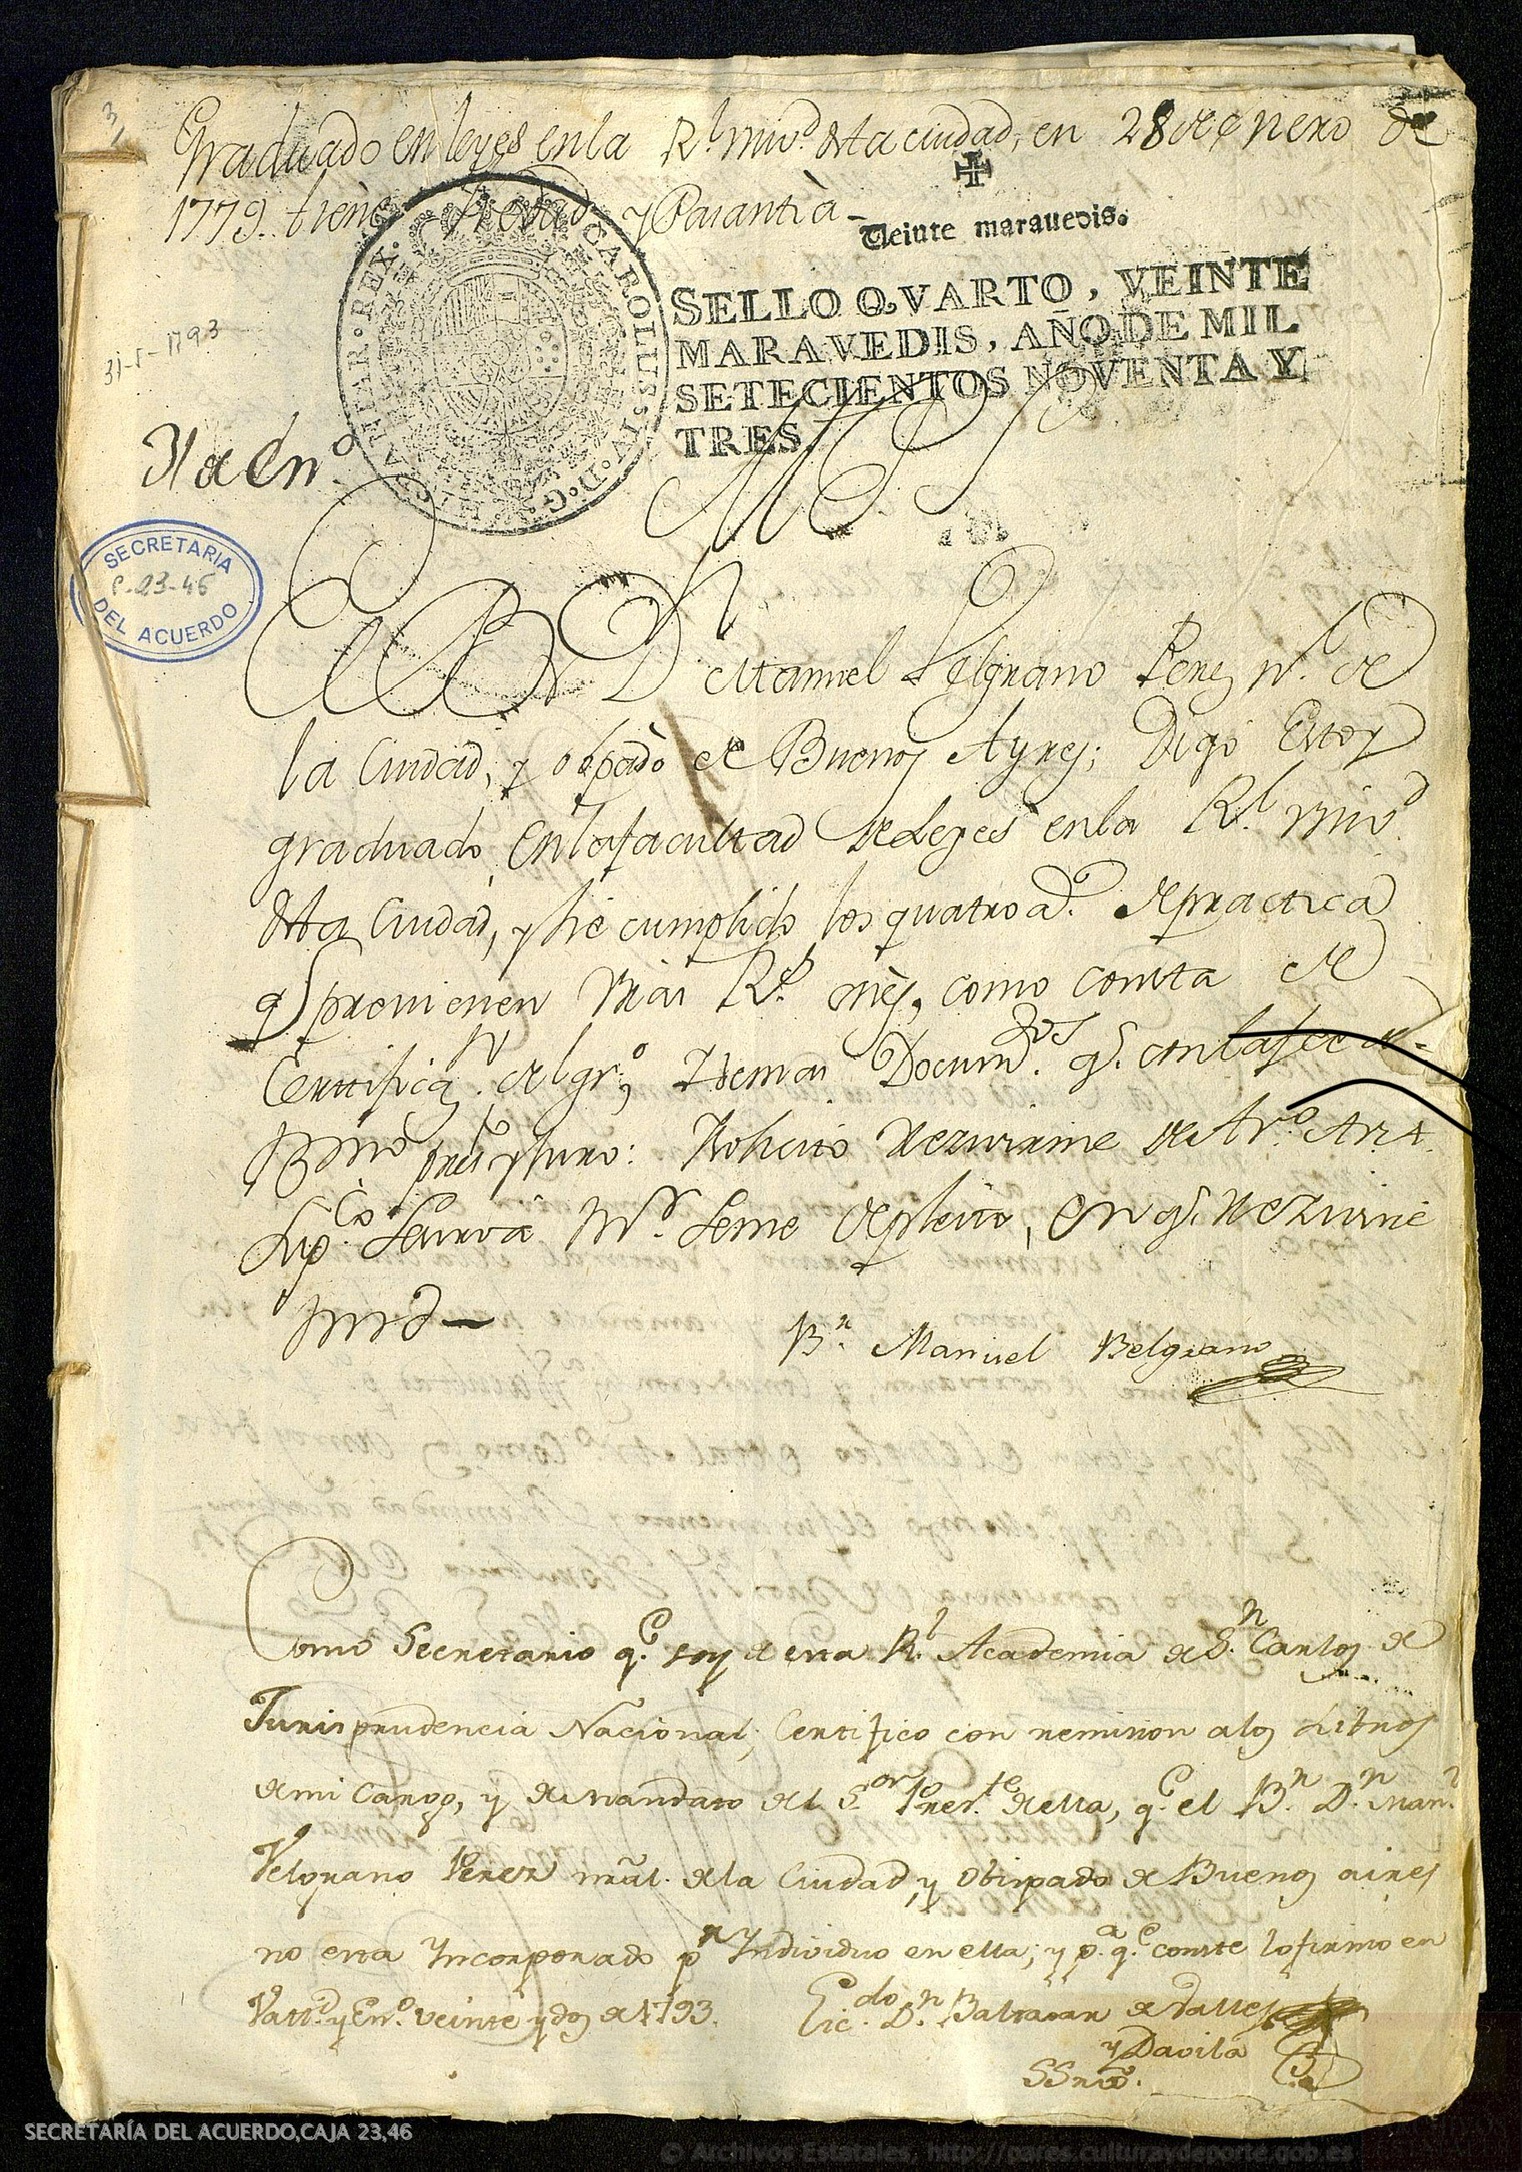 3/1
Graduado en leyes en la Rl. Univd. dsta ciudad, en 28 de enero de
1779. tiène Hedad y Pasantìa
Veinte marauedis.
SELLO QVARTO, VEINTE
MARAVEDIS, AÑO DE MIL
SETECIENTOS NOVENTA Y
TRES.
CAROLUS·IV·D·G·HISPANIAR·REX·
31-1-1793
31 de Enº.
MPS
SECRETARIA
C-23-46
DEL ACUERDO
El Bn. Dn. Manuel Velgrano Perez nl. de
la Ciudad, y obpadò de Buenos Ayres; Digo Estoy
graduado, en la facultad de Leyes en la Rl. Univd.
dsta Ciudad, y hè cumplido los quatro as. de practica
qe previenen Vras Rs. , como consta de
Certificaⁿ. de grº, y demas Documtos. qe. con la fee de
Bmo presto y juro:
Suppco. Se sirva
Bn. Manuel Belgrano
Como Secretario qe. soy de esta Rl. Academia de Sn. Carlos de
Jurisprudencia Nacional; Certifico con remision a los Libros
de mi cargo, y de mandato del Sor. Preste. de ella, qe. el Bn. Dn. Manl.
Velgrano Perez nral. de la Ciudad, y Obispado de Buenos aires
no esta Yncorporado pr. Yndividuo en ella; y pa. qe. conste lo firmo en
Valld. y Enº. veinte y dos de 1793.
Licdo. Dn. Baltasar de Valles
y Davila
SSrio.
SECRETARÍA DEL ACUERDO,CAJA 23,46
© Archivos Estatales, http://pares.culturaydeporte.gob.es